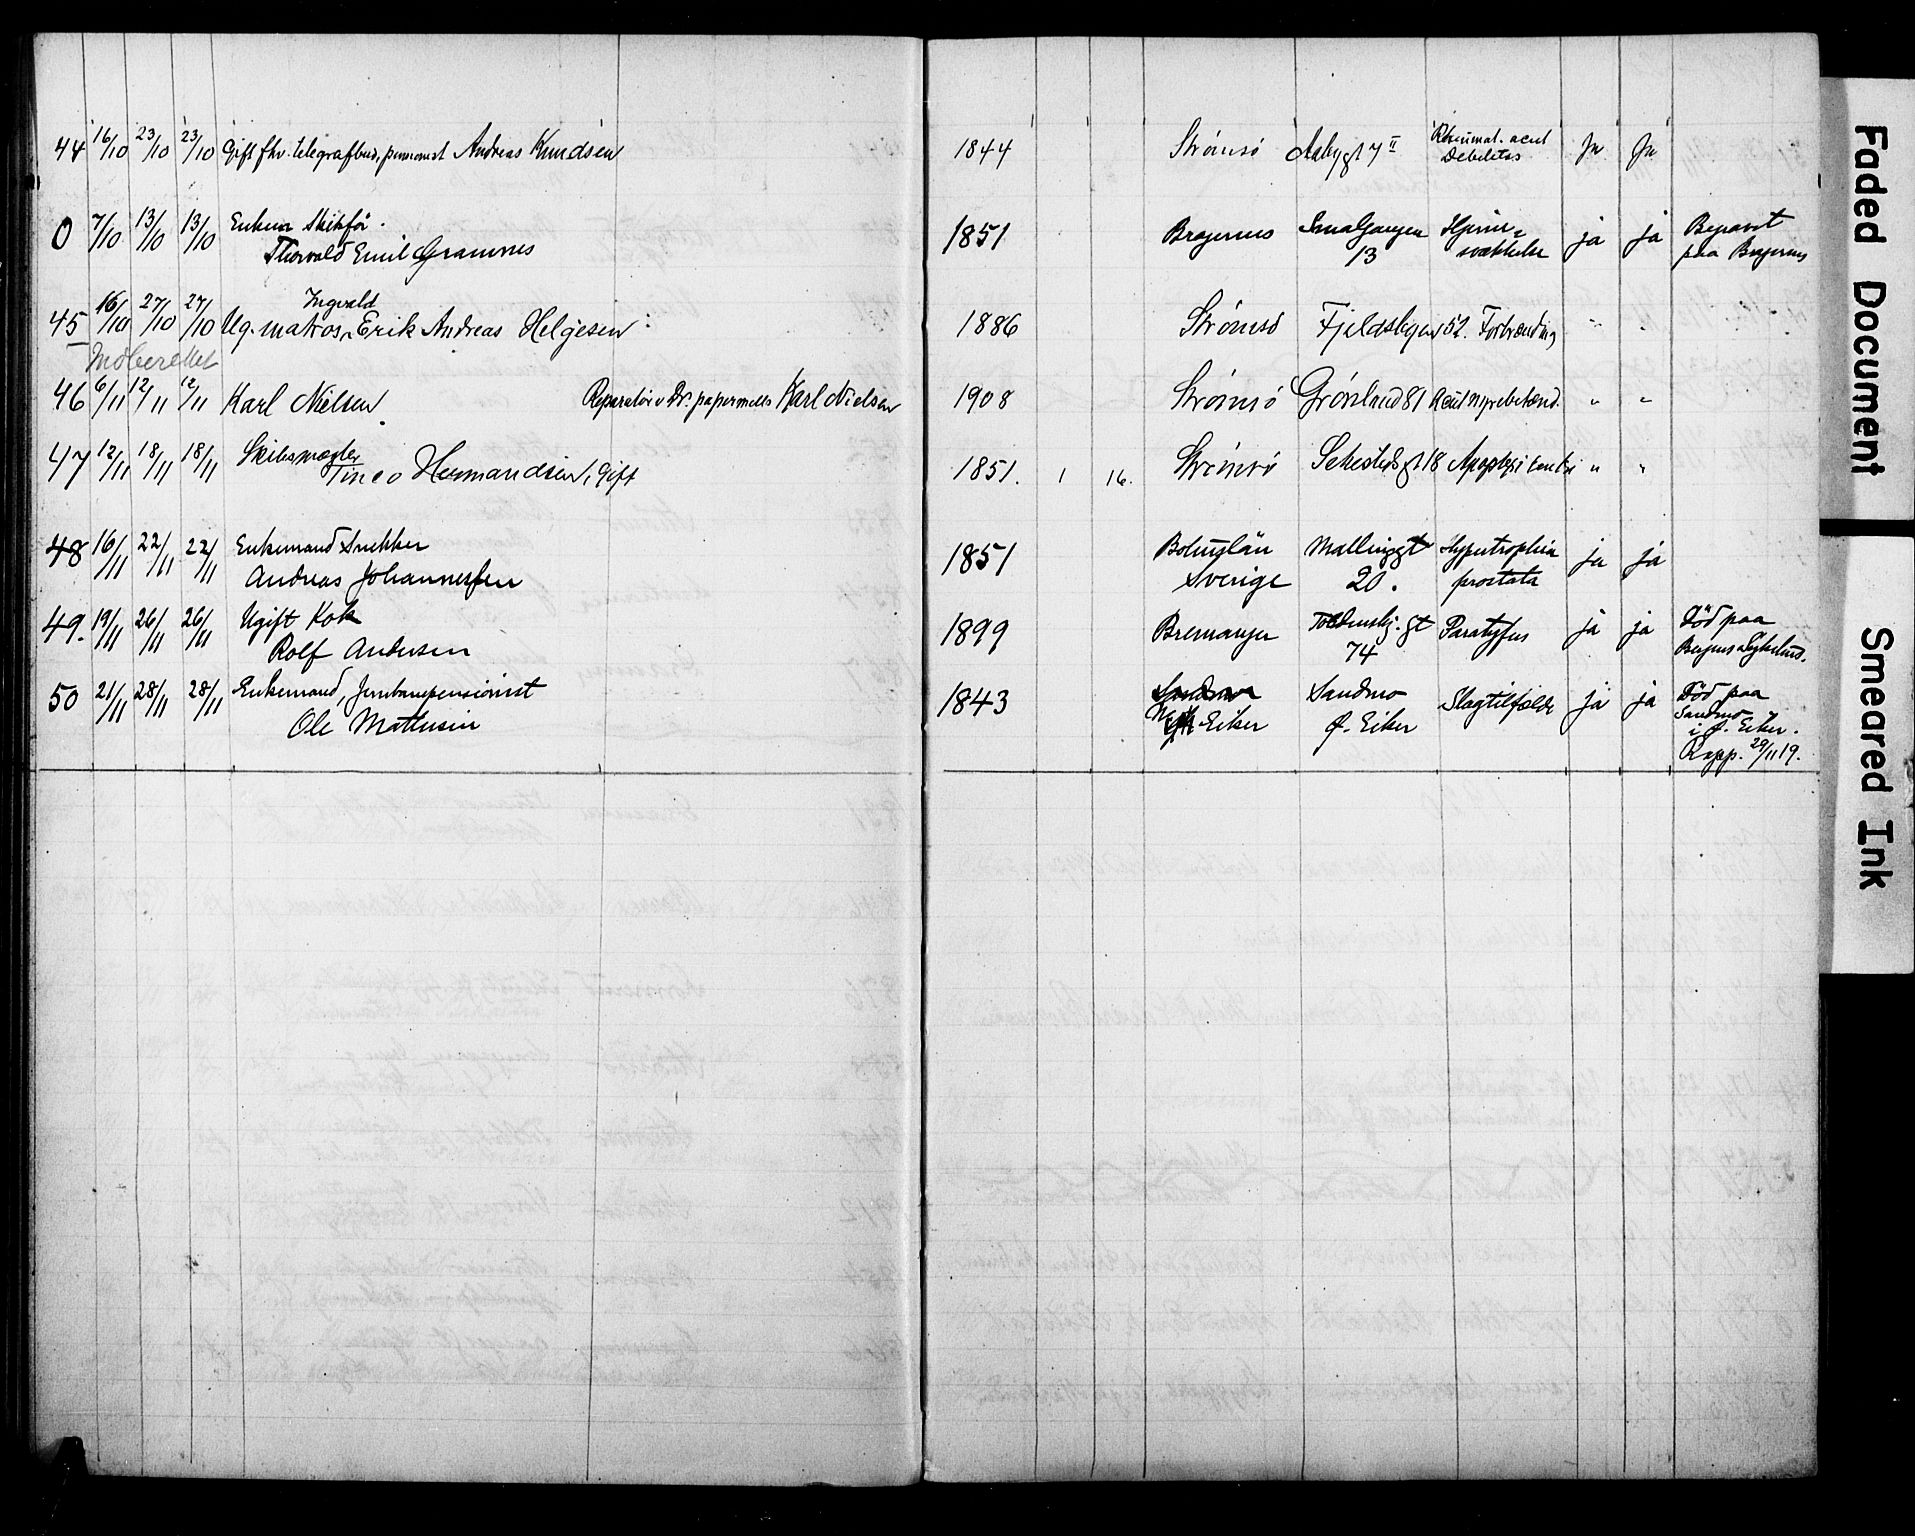 44 16/10 23/10 23/10 Gift fhv. telegrafbud, pensionist Andreas Knudsen 1844 Strømsø Aabygt 7 II Rheumat. acut Debilitas Ja Ja
0 7/10 13/10 13/10 Enkem Skibsfö. 1851 Bragernes Smalgangen Hjerne= ja ja Begravet
Thorvald Emil Gramnes 13 svækkelse paa Bragernes
Ingvald
45 16/10 27/10 27/10 Ug. matros, Erik Andreas Helgesen 1886 Strømsö Fjeldsbyen 52. Forbrænding " "
Indberettet
46 6/11 12/11 12/11 Karl Nielsen. Reparatör v Dr. papermills Karl Nielsen 1908 Strömsö Grönland 81 Acut nyrebetænd. " "
47 12/11 18/11 18/11 Skibsmægler 1851. 1 16. Strömsö Sehestedsgt 18 Apoplexi cerebri " "
Tinco Hermandsen, Gift
48 16/11 22/11 22/11 Enkemand Snekker 1851 Bohuslän Mallinggt Hypertrophia ja ja
Andreas Johannessen Sverige 20. prostata
49. 19/11 26/11 26/11 Ugift Kok 1899 Bremanger Toldensbj. gt Paratyfus ja ja Död paa
Rolf Andersen 74 Bergens Sykehus.
50 21/11 28/11 28/11 Enkemand, Jernbanepensionist 1843 Sandmo Slagtilfælde ja ja Död paa
Ole Mathisen Eiker Ø. Eiker Sandmo
i Ø. Eiker.
Rapp. 29/11 19.
Faded Document
Smeared Ink